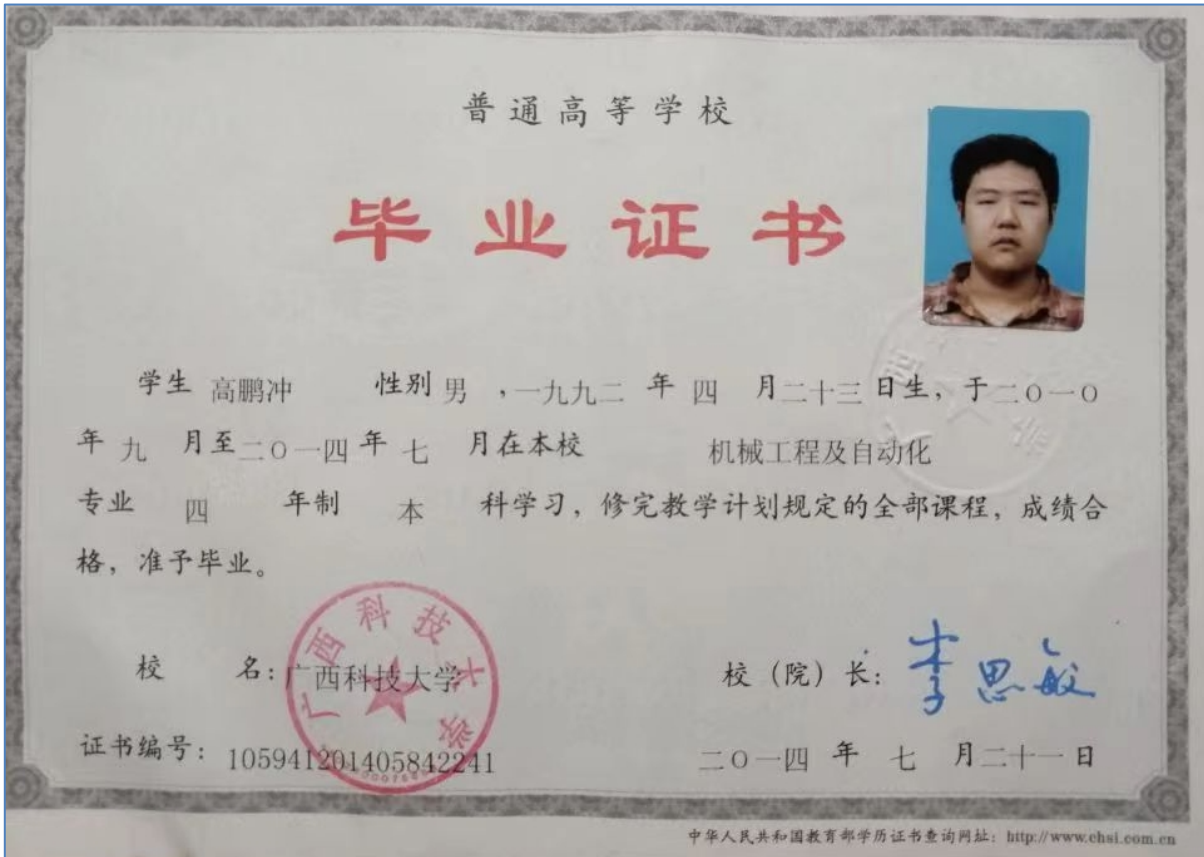 普通高等学校
毕业证书
学生 高鹏冲 性别 男 ，一九九二 年 四 月二十三日生，于二○一○
年 九 月至二○一四年 七 月在本校 机械工程及自动化
专业 四 年制 本 科学习，修完教学计划规定的全部课程，成绩合
格，准予毕业。
校 名：广西科技大学
广西科技大学
校（院）长：李思敏
证书编号：105941201405842241
二○一四 年 七 月二十一日
中华人民共和国教育部学历证书查询网址：http://www.chsi.com.cn